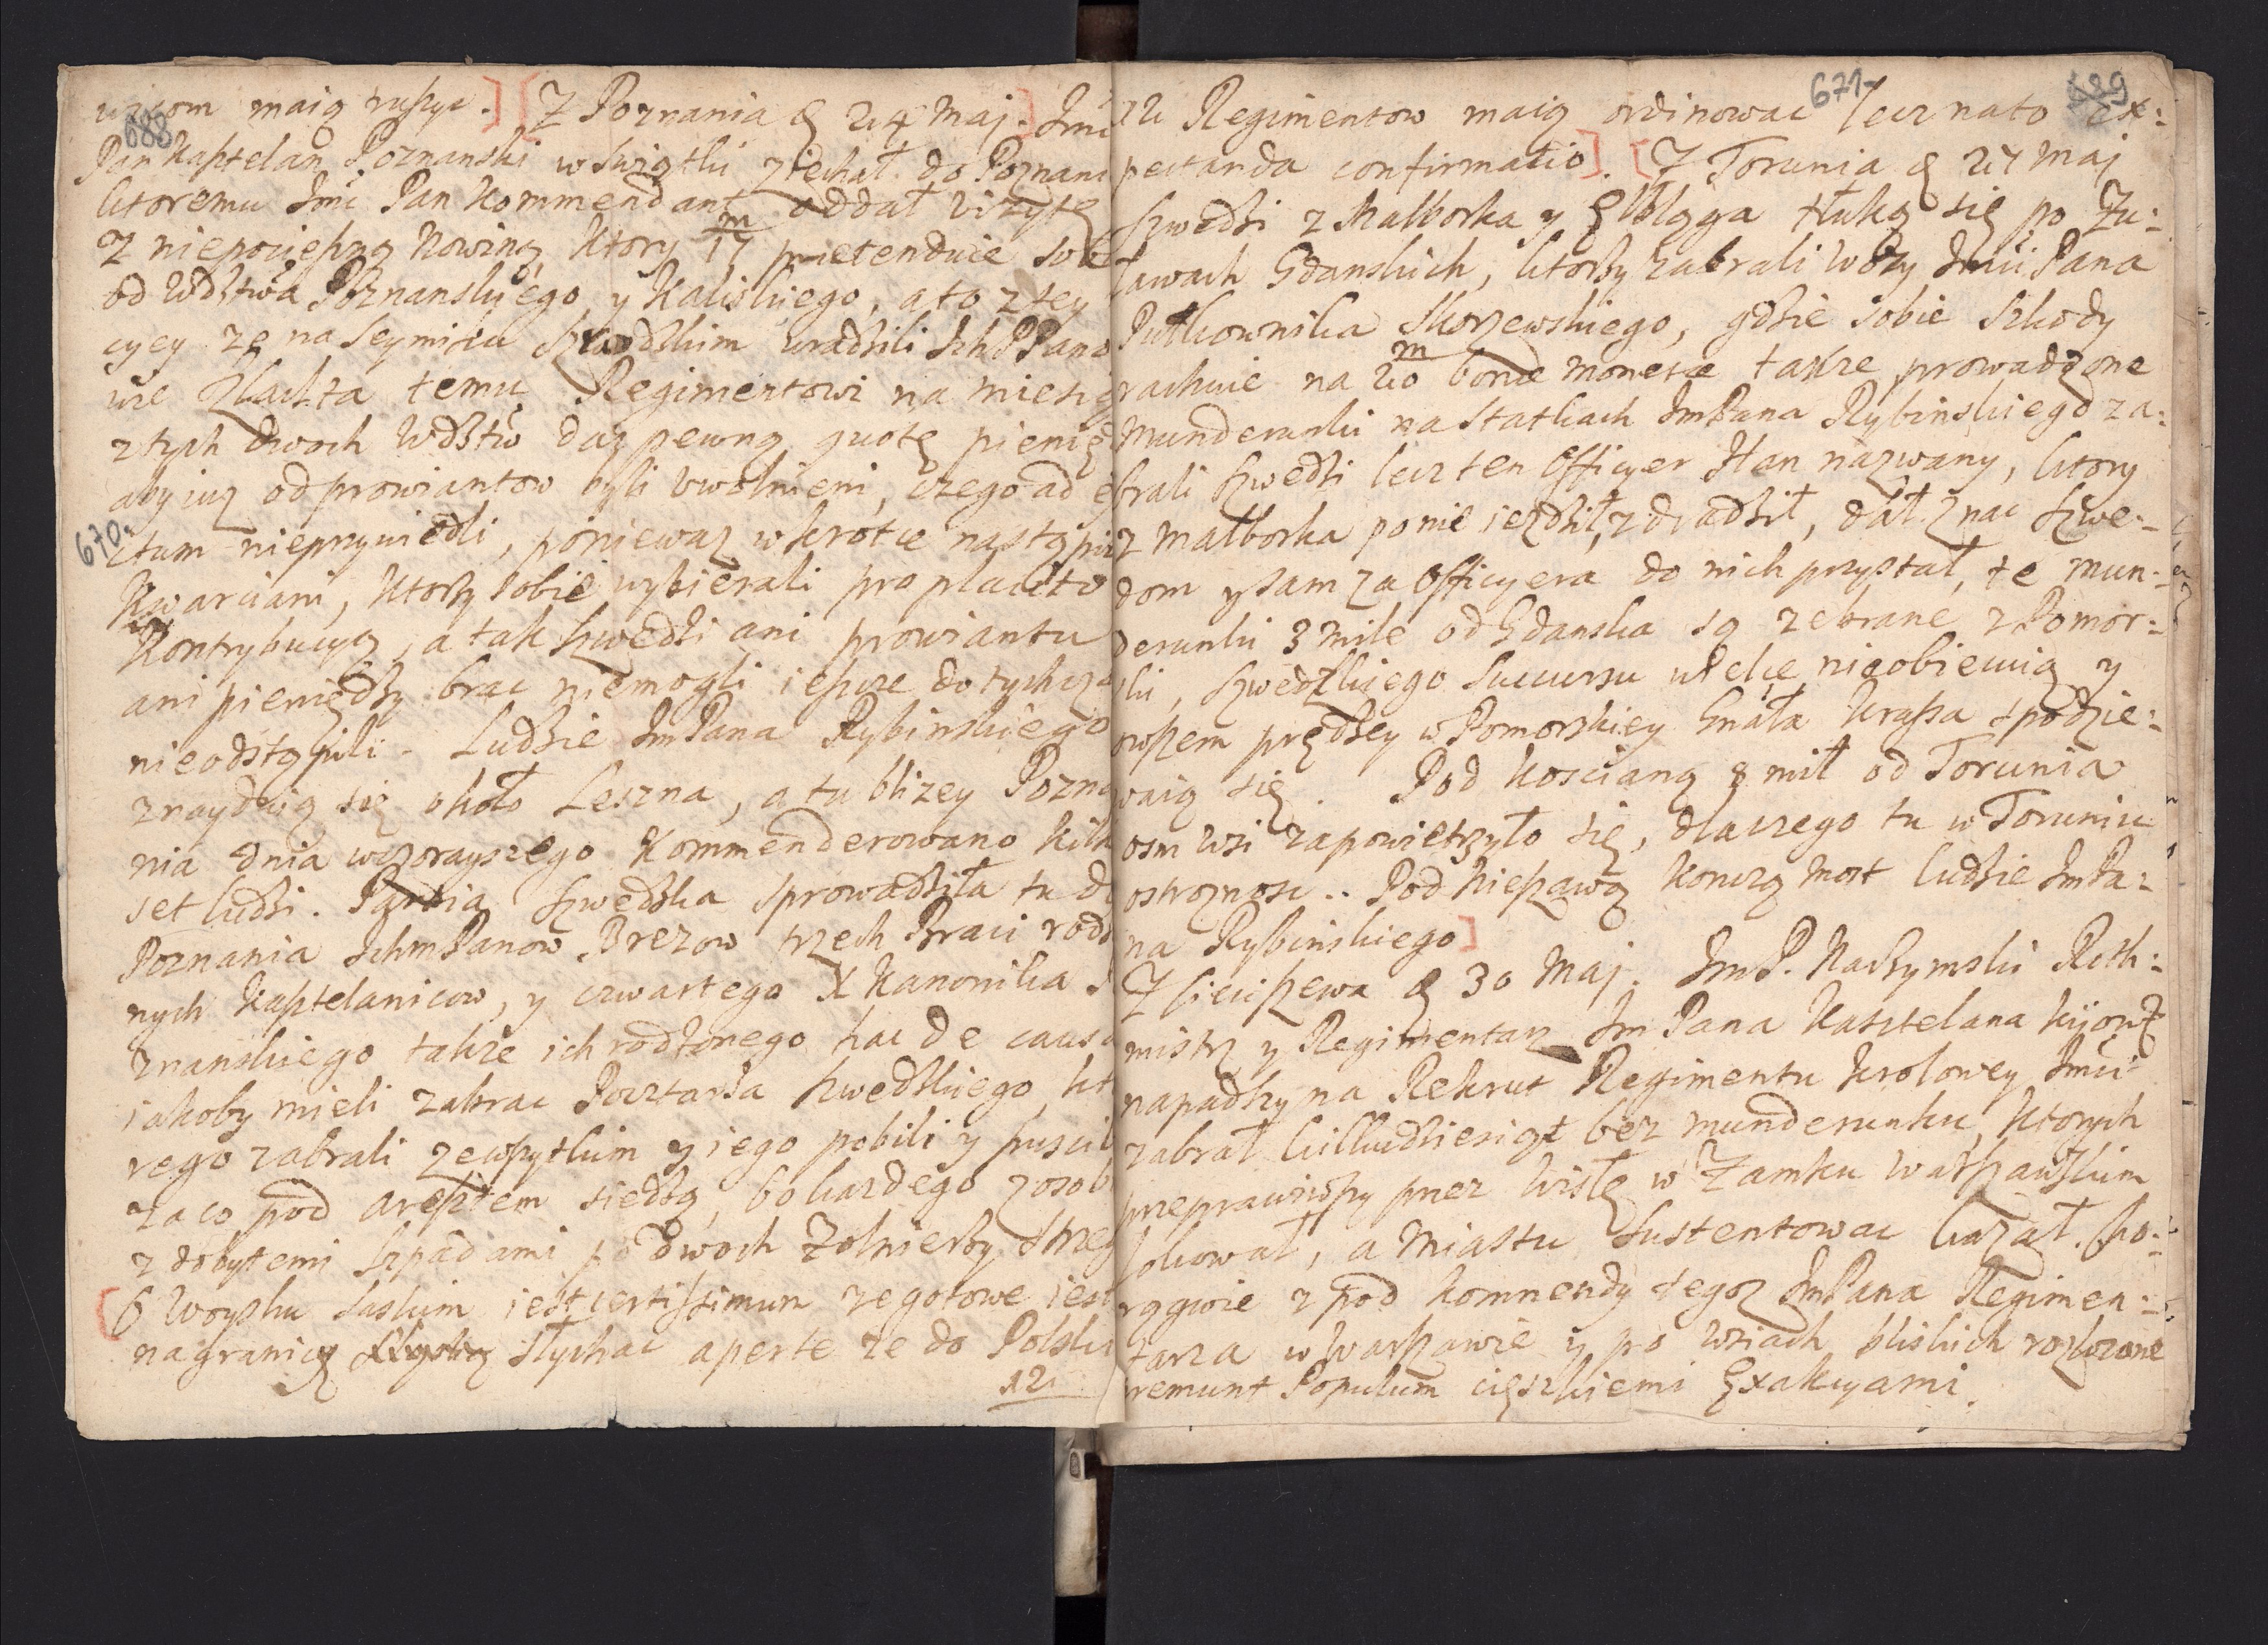 688
maią ruszyc. Z Poznania d 24 Maj. Jmć
Pan Kasztelan Poznanski w Swiątki ziechał do Poznani
ktoremu Jmć Pan Kommendant oddał vizytę
Z niepocieszną Nowiną, ktory 17 m pretenduie sob
od Wdztwa Poznanskiego y Kaliskiego, a to z tey
cyey ze na Seymiku Szrodzkim uradzili Ich PPano
wie Szlachta temu Regimentowi na miesią
z tych dwoch Wdztw daz pewną quotę pienię
aby iuz od prowiantow byli uwolnieni, czego ad ef
670.
ctum nieprzywiedli, poniewaz wkrotce nastąpi
Kwarciani, ktorzy sobie wybierali pro placito
Kontrybucyą, a tak Szwedzi ani prowiantu
ani pieniędzy brac niemogli ieszcze dotychcza
nieodstąpili. Ludzie JmPana Rybinskiego
znayduią się około Leszna, a tu blizey Pozna
nia dnia wczorayszego Kommenderowano kilk
set ludzi. Partia Szwedzka sprowadziła tu do
Poznania IchmPanow Brezow trzech Braci rodz
nych Kasztelanicow, y czwartego X Kanonika
znanskiego takze ich rodzonego hac de causa
iakoby mieli zabrac Pocztarza Szwedzkiego, kt
rego zabrali zewszytkim y iego pobili y puscil
za co pod aresztem siedzą, bo kazdego z osob
z dobytemi szpadami po dwoch Zolnierzy strzeg
O Woysku Saskim iest certissimum ze gotowe iest
na granicy słychac aperte ze do Polski
12
671
689
12 Regimentow maią ordinowac lecz na to ex:
pectanda confirmatio. Z Torunia d 27 Maj
Szwedzi z Malborka y Elbląga tłuką się po Zu:
ławach Gdanskich, ktorzy zabrali wozy Jmći Pana
Pułkownika Skorzewskiego, gdzie sobie szkody
rachuie na 20 m bonæ monetæ takze prowadzone
Munderunki na statkach JmPana Rybinskiego za:
brali Szwedzi lecz ten Officyer Han nazwany, ktory
z Malborka ponie iezdził, zdradził, dał znac Szwe:
dom y sam za Officyera do nich przystał, te mun:
derunki 3 mile od Gdanska są zebrane z Pomor:
ski, Szwedzkiego Succursu wielce nieobiecuią y
owszem prędzey w Pomorskiey Gnała Krassa spodzie:
waią się. Pod Koscianą 8 mil od Torunia
osm Wsi zapowietrzyło się, dlaczego tu w Toruniu
ostroznosc.. Pod Nieszawą konczą most ludzie JmPa:
na Rybinskiego
Z Cieciszewa d 30 Maj. JmP. Roth:
mistrz y Regimentarz Jm Pana Kasztelana
napadszy na Rekrut Regimentu Krolowey Jmći
zabrał killudziesiąt bez munderunku, ktorych
przeprawiwszy przez Wisłę w Zamku Warszawskim
lokował, a Miastu sustentowac kazał. Cho:
rągwie z pod kommendy tegoz JmPana Regimen:
tarza w Warszawie y po Wsiach bliskich rozlozone
premunt Populum cięszkiemi Exakcyami.